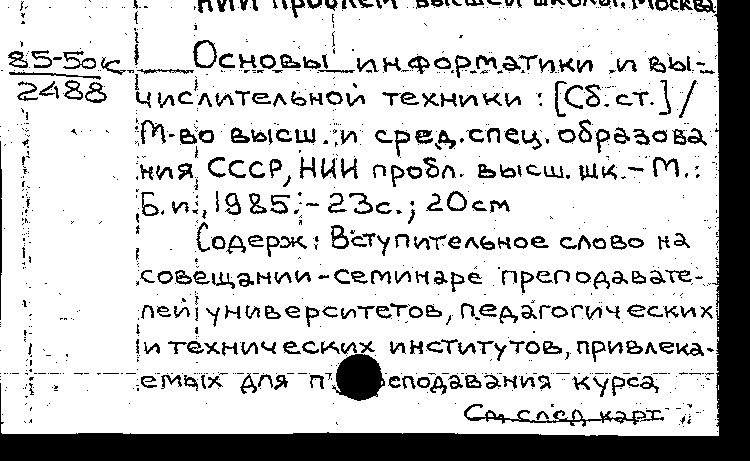 НИИ проблем высшей школы. Москва
85-5ок
2488
Основы информатики и вы-
числительной техники : [Сб. ст.] /
М-во высш. и сред. спец. образова
ния СССР, НИИ пробл. высш. шк. - М. :
Б. и., 1985. - 23с. ; 20см
Содерж: Вступительное слово на
совещании-семинаре преподавате-
лей университетов, педагогических
и технических институтов, привлека-
емых для преподавания курса
См. след. карт.